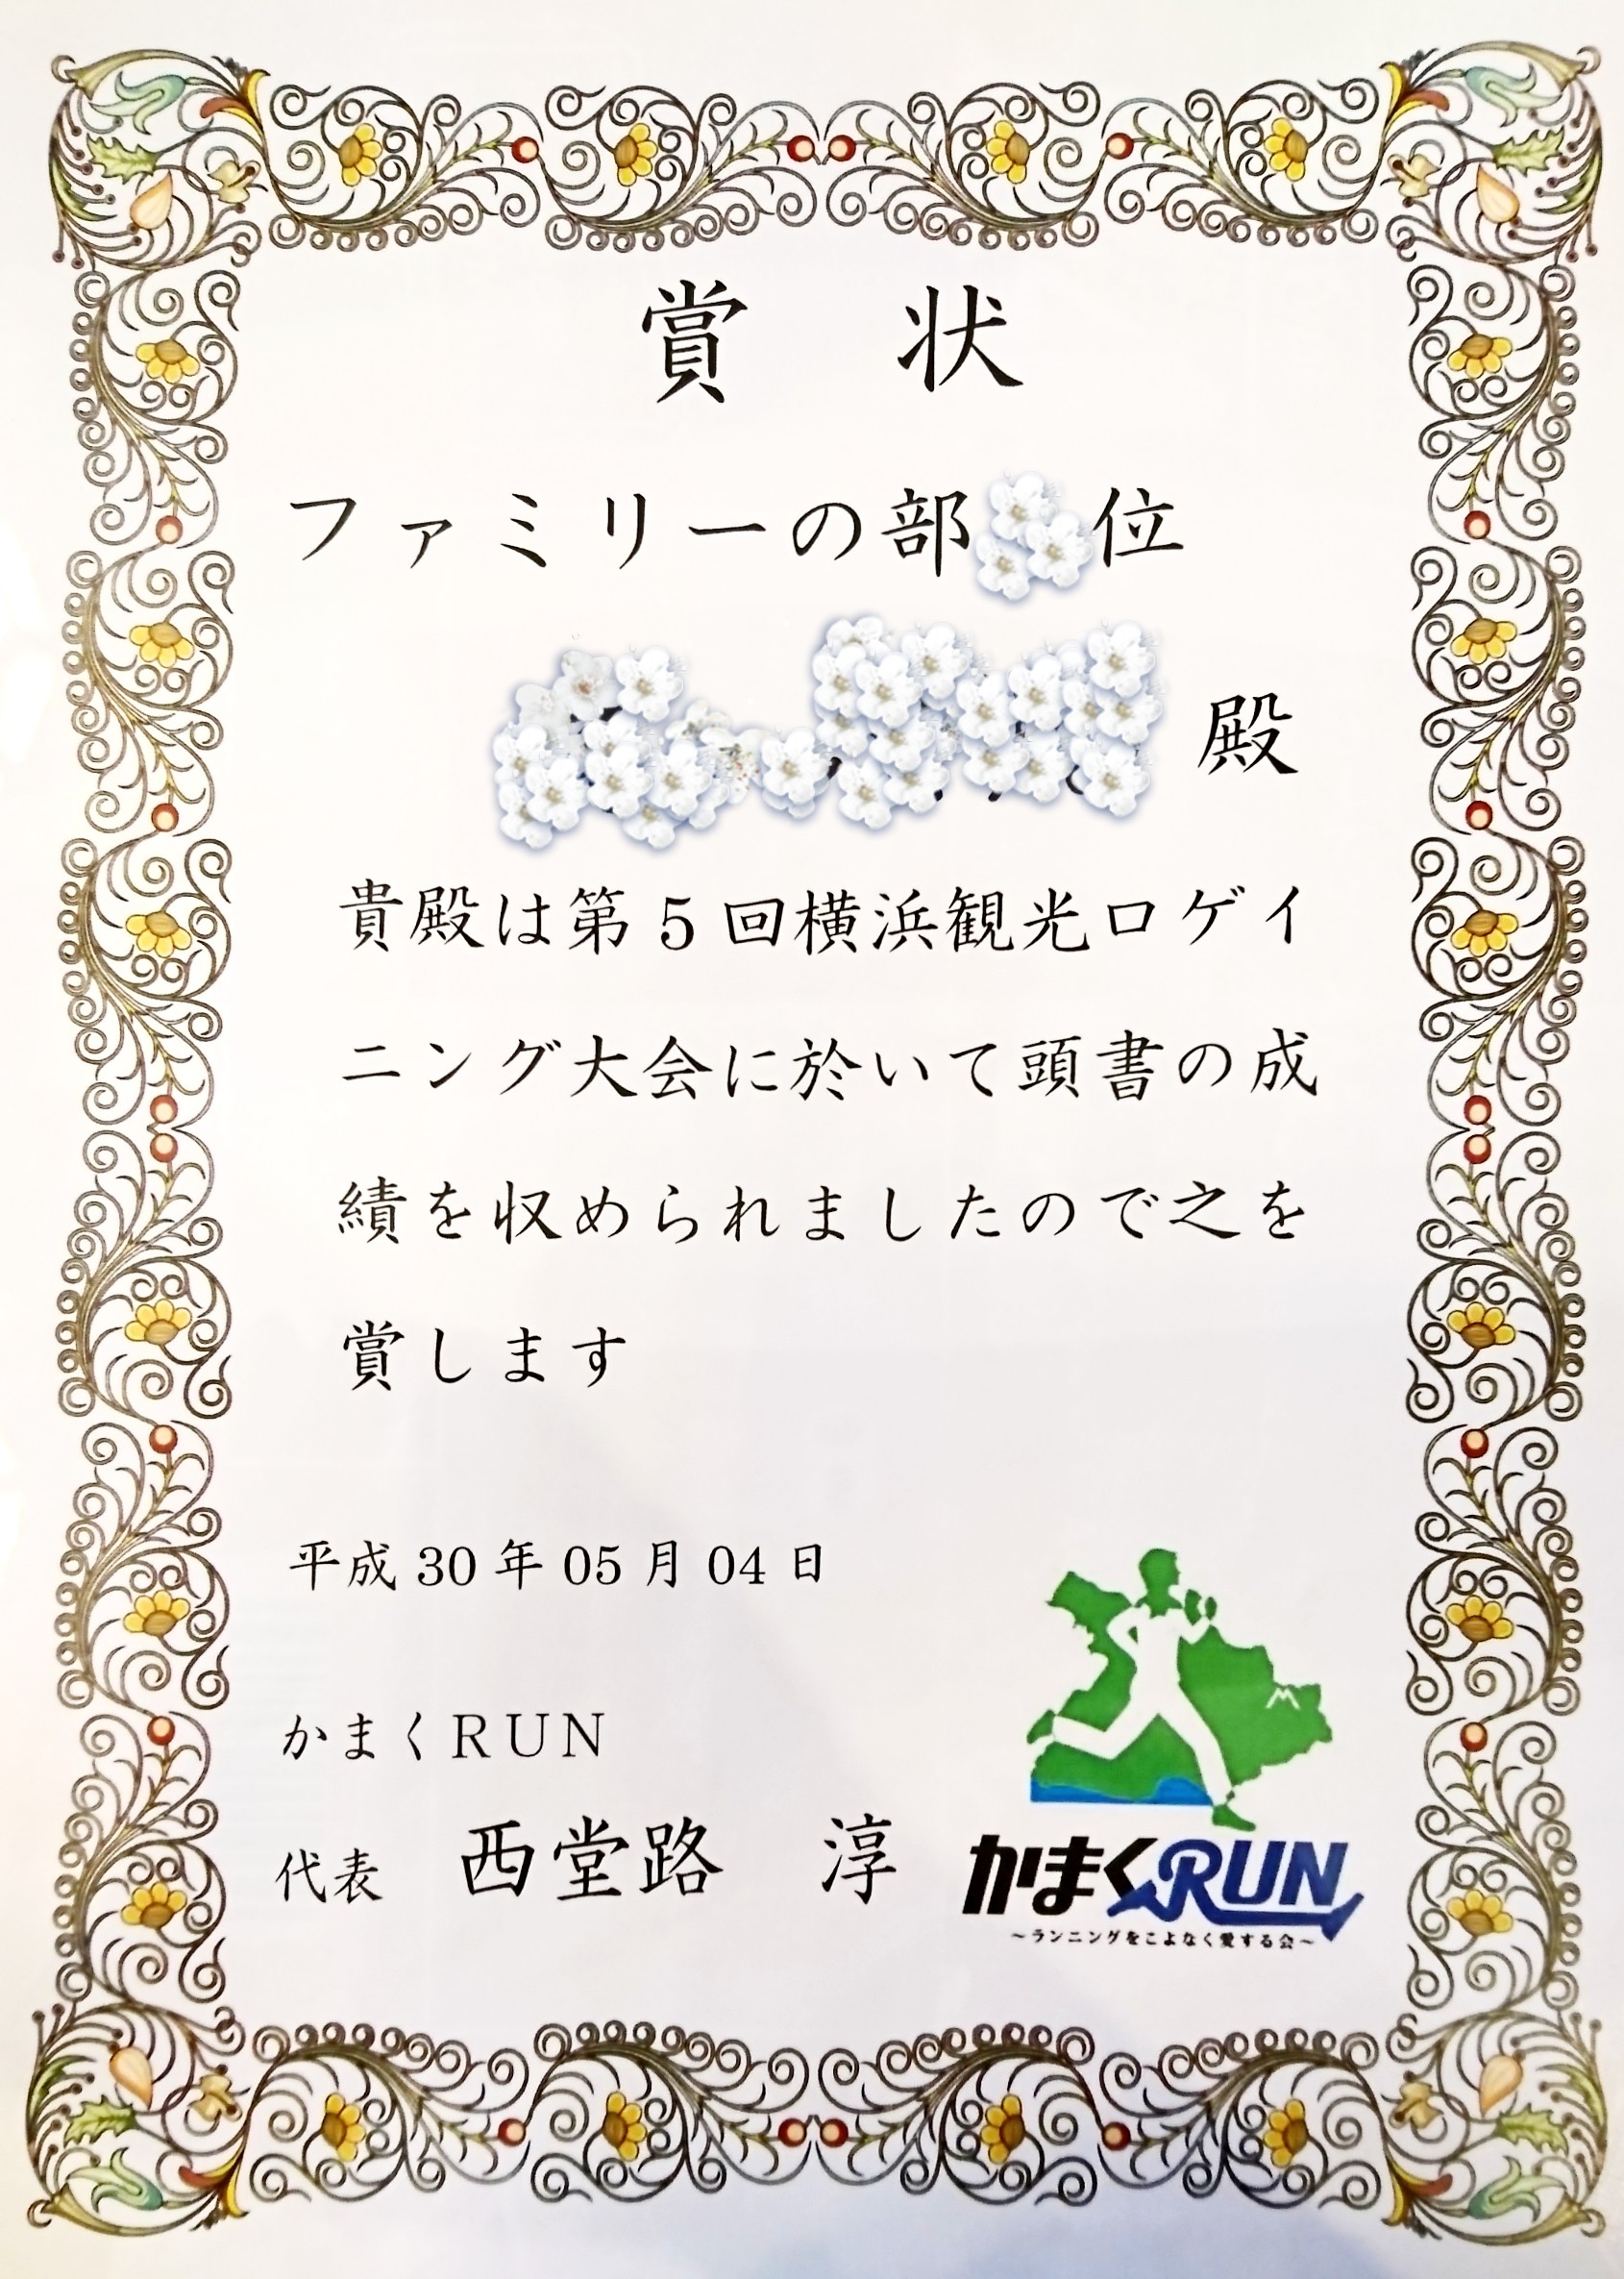 賞 状
ファミリーの部 位
殿
貴殿は第5回横浜観光ロゲイ
ニング大会に於いて頭書の成
績を収められましたので之を
賞します
平成30年05月04日
かまくRUN
代表 西堂路 淳
かまくRUN
～ランニングをこよなく愛する会～